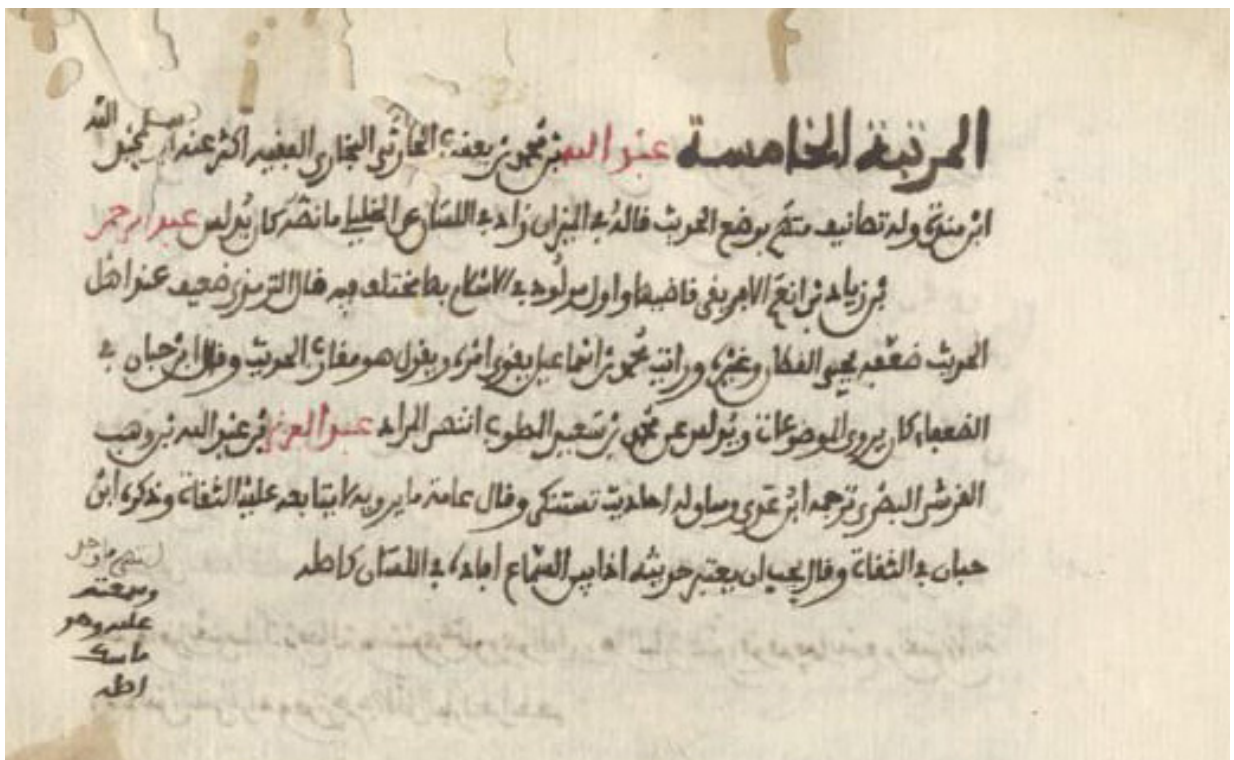 المرتبة الخامسة عبد الله بن محمد بن يعقوب الحارثي البخاري الفقيه أكثر عنه أبو عبد الله
ابن مندة وله تصانيف متهم بوضع الحديث قاله في الميزان زاد في اللسان عن الخليلي ما نصه كان يدلس عبد الرحمن
بن زياد بن أنعم الإفريقي قاضيها وأول مولود في الإسلام بها مختلف فيه قال الترمذي ضعيف عند أهل
الحديث ضعفه يحيى القطان وغيره ورأيت محمد بن إسماعيل يقوي أمره ويقول هو مقارب الحديث وقال ابن حبان في
الضعفاء كان يروي الموضوعات ويدلس عن محمد بن سعيد المصلوب انتهى المراد عبد العزيز بن عبد الله بن وهب
القرشي البصري ترجمه ابن عدي وساق له أحاديث تستنكر وقال عامة ما يرويه لا يتابعه عليه الثقات وذكره ابن
حبان في الثقات وقال يجب أن يعتبر حديثه إذا بين السماع أفاده في اللسان كأصله
عليه وهو
أصله